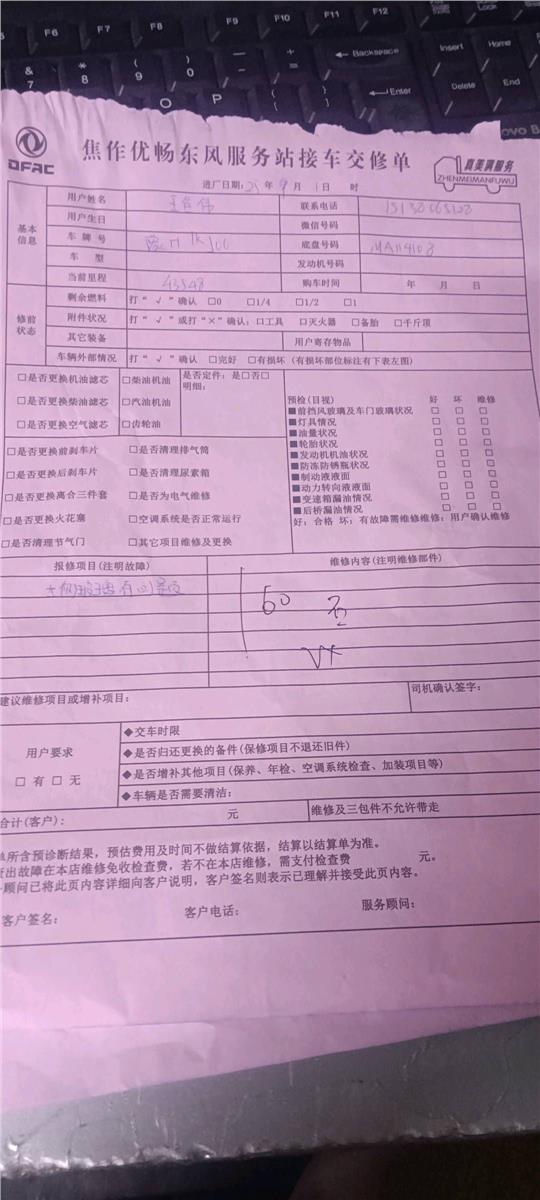 F6 F7 F8 F9 F10 F11 F12
& 7 * 8 ( 9 ) 0 — - + = ← Backspace Insert Home
O P { [ } ] ← Enter Delete End
DFAC
焦作优畅东风服务站接车交修单
真美满服务
ZHENMEIMANFUWU
进厂日期：25年9月1日 时
基本信息
用户姓名 联系电话
用户生日 微信号码
车牌号 底盘号码 MA114108
车型 发动机号码
当前里程 43548 购车时间 年 月 日
修前状态
剩余燃料 打“√”确认 □0 □1/4 □1/2 □1
附件状况 打“√”或打“×”确认：□工具 □灭火器 □备胎 □千斤顶
其它装备 用户寄存物品
车辆外部情况 打“√”确认 □完好 □有损坏（有损坏部位标注有下表左图）
□是否更换机油滤芯 □柴油机油 是否定件：是□否□
明细：
□是否更换柴油滤芯 □汽油机油
□是否更换空气滤芯 □齿轮油
□是否更换前刹车片 □是否清理排气筒
□是否更换后刹车片 □是否清理尿素箱
□是否更换离合三件套 □是否为电气维修
□是否更换火花塞 □空调系统是否正常运行
□是否清理节气门 □其它项目维修及更换
预检(目视) 好 坏 维修
■前挡风玻璃及车门玻璃状况 □ □ □
■灯具情况 □ □ □
■油量状况 □ □ □
■轮胎状况 □ □ □
■发动机机油状况 □ □ □
■防冻防锈瓶状况 □ □ □
■制动液液面 □ □ □
■动力转向液液面 □ □ □
■变速箱漏油情况 □ □ □
■后桥漏油情况 □ □ □
好：合格 坏：有故障需维修维修：用户确认维修
报修项目(注明故障) 维修内容(注明维修部件)
60
建议维修项目或增补项目： 司机确认签字：
用户要求
□ 有 □ 无
◆交车时限
◆是否归还更换的备件(保修项目不退还旧件)
◆是否增补其他项目(保养、年检、空调系统检查、加装项目等)
◆车辆是否需要清洁：
合计(客户)： 元 维修及三包件不允许带走
单所含预诊断结果，预估费用及时间不做结算依据，结算以结算单为准。
查出故障在本店维修免收检查费，若不在本店维修，需支付检查费 元。
务顾问已将此页内容详细向客户说明，客户签名则表示已理解并接受此页内容。
客户签名： 客户电话： 服务顾问：